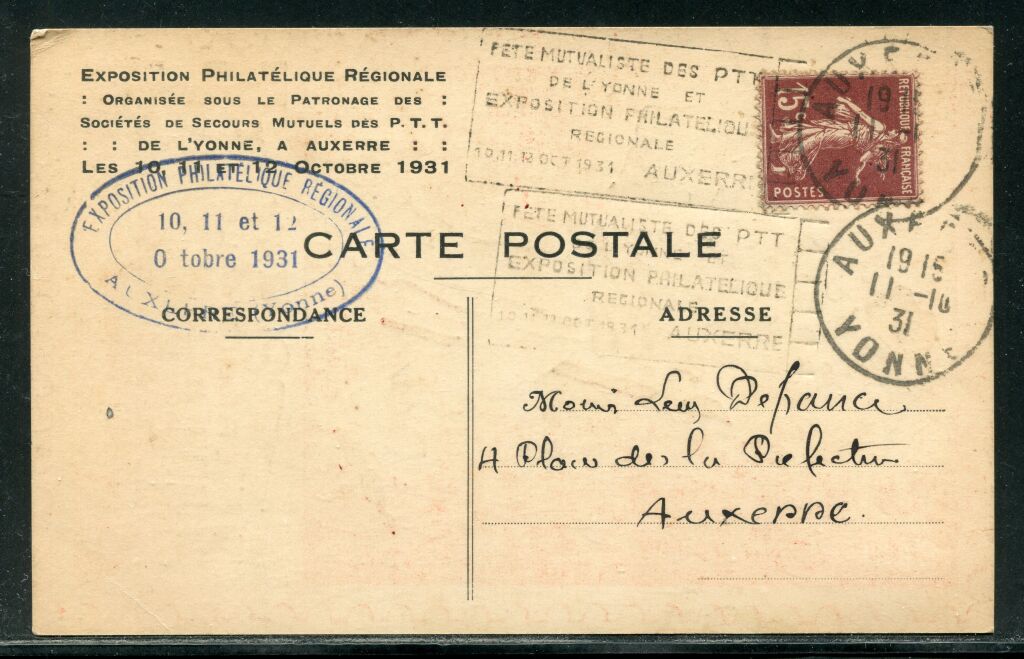 EXPOSITION PHILATÉLIQUE RÉGIONALE
: ORGANISÉE SOUS LE PATRONAGE DES :
SOCIÉTÉS DE SECOURS MUTUELS DES P. T. T.
: : DE L'YONNE, A AUXERRE : :
LES 10, 11 ET 12 OCTOBRE 1931
EXPOSITION PHILATÉLIQUE RÉGIONALE
10, 11 et 12
O tobre 1931
(Yonne)
FETE MUTUALISTE DES PTT
DE L'YONNE ET
EXPOSITION PHILATELIQUE
REGIONALE
10.11.12 OCT 1931 AUXERRE
REPUBLIQUE FRANÇAISE
15c
POSTES
19
11
31
FETE MUTUALISTE DES PTT
DE L'YONNE ET
EXPOSITION PHILATELIQUE
REGIONALE
10.11.12 OCT 1931 AUXERRE
AUXE
1915
11-10
31
YONNE
CARTE POSTALE
CORRESPONDANCE
ADRESSE
Defrance
4 Place de la Préfecture
Auxerre